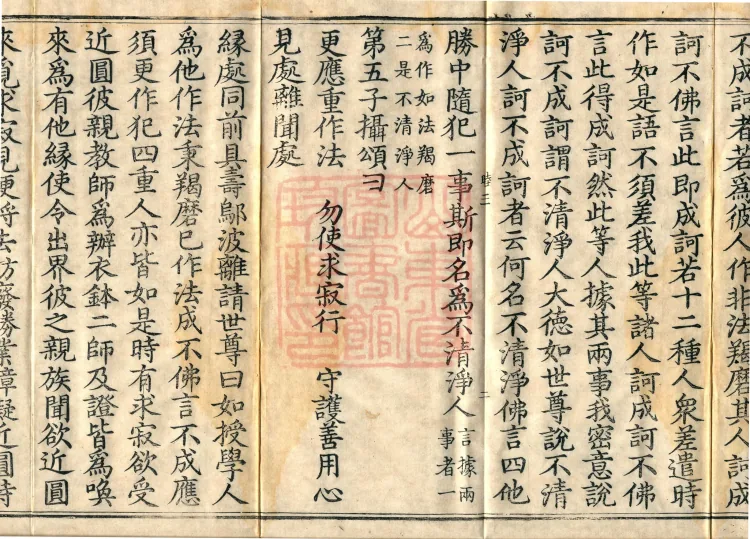 不成訶者若爲彼人作非法羯磨其人訶成
訶不佛言此即成訶若十二種人衆差遣時
作如是語不須差我此等諸人訶成訶不佛
言此得成訶然此等人據其兩事我密意説
訶不成訶謂不清淨人大德如世尊説不清
淨人訶不成訶者云何名不清淨佛言四他
睦三 二
勝中隨犯一事斯即名爲不清淨人
言據兩
事者一
爲作如法羯磨
二是不清淨人
第五子攝頌曰
更應重作法 勿使求寂行 守護善用心
見處離聞處
緣處同前具壽鄔波離請世尊曰如授學人
爲他作法秉羯磨已作法成不佛言不成應
須更作犯四重人亦皆如是時有求寂欲受
近圓彼親教師爲辦衣鉢二師及證皆爲喚
來爲有他緣使令出界彼之親族聞欲近圓
來覓求寂見便將去 勝業章疑近圓時